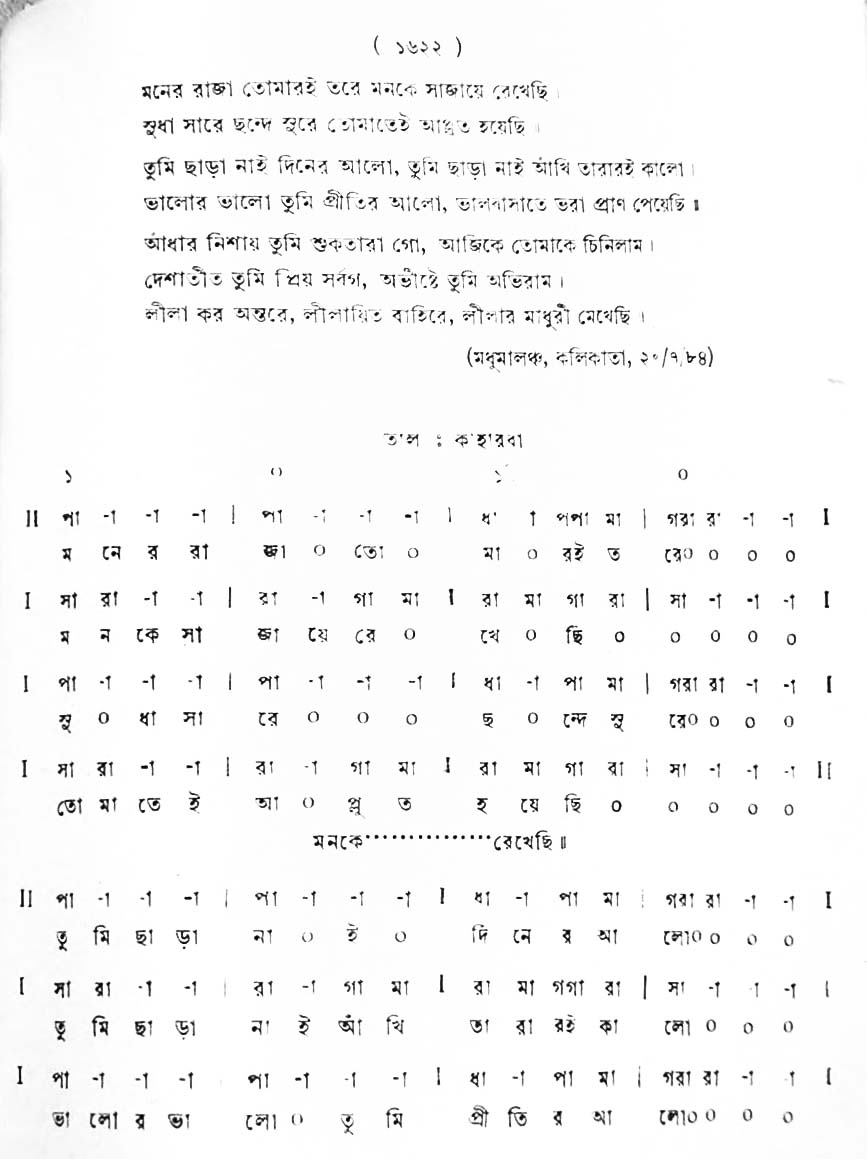 ( ১৬২২ )
মনের রাজা তোমারই তরে মনকে সাজায়ে রেখেছি ।
সুধা সারে ছন্দে সুরে তোমাতেই আপ্লুত হয়েছি ।
তুমি ছাড়া নাই দিনের আলো, তুমি ছাড়া নাই আঁখি তারারই কালো ।
ভালোর ভালো তুমি প্রীতির আলো, ভালবাসাতে ভরা প্রাণ পেয়েছি ॥
আঁধার নিশায় তুমি শুকতারা গো, আজিকে তোমাকে চিনিলাম ।
দেশাতীত তুমি প্রিয় সর্বগ, অভীষ্টে তুমি অভিরাম ।
লীলা কর অন্তরে, লীলায়িত বাহিরে, লীলার মাধুরী মেখেছি ।
(মধুমালঞ্চ, কলিকাতা, ২০/৭/৮৪)
তাল : কাহারবা
১ ০ ১ ০
II পা -া -া -া | পা -া -া -া I ধা া পপা মা | গরা রা -া -া I
ম নে র রা জা ০ তো ০ মা ০ রই ত রে০ ০ ০ ০
I সা রা -া -া | রা -া গা মা I রা মা গা রা | সা -া -া -া I
ম ন কে সা জা য়ে রে ০ খে ০ ছি ০ ০ ০ ০ ০
I পা -া -া -া | পা -া -া -া I ধা -া পা মা | গরা রা -া -া I
সু ০ ধা সা রে ০ ০ ০ ছ ০ ন্দে সু রে০ ০ ০ ০
I সা রা -া -া | রা -া গা মা I রা মা গা রা | সা -া -া -া II
তো মা তে ই আ ০ প্লু ত হ য়ে ছি ০ ০ ০ ০ ০
মনকে················রেখেছি ॥
II পা -া -া -া | পা -া -া -া I ধা -া পা মা | গরা রা -া -া I
তু মি ছা ড়া না ০ ই ০ দি নে র আ লো০ ০ ০ ০
I সা রা -া -া | রা -া গা মা I রা মা গগা রা | সা -া -া -া I
তু মি ছা ড়া না ই আঁ খি তা রা রই কা লো ০ ০ ০
I পা -া -া -া পা -া -া -া I ধা -া পা মা | গরা রা -া -া I
ভা লো র ভা লো ০ তু মি প্রী তি র আ লো০ ০ ০ ০